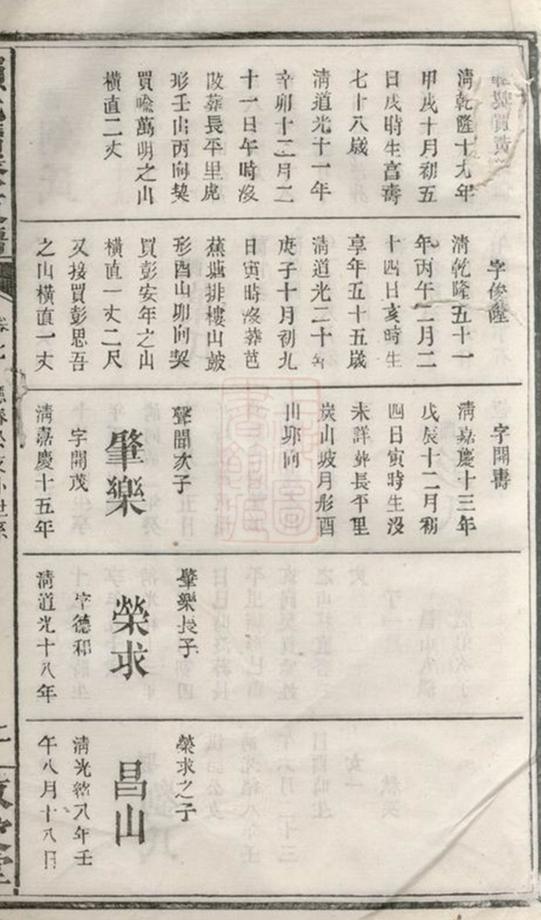 清乾隆十九年
甲戌十月初五
日戌時生富壽
七十八歲
清道光十一年
辛卯十二月二
十一日午時沒
改葬長平里虎
形壬山丙向契
買喻萬明之山
橫直二丈
字俊陞
清乾隆五十一
年丙午二月二
十四日亥時生
享年五十五歲
清道光二十年
庚子十月初九
日寅時沒葬芭
蕉塘排樓山鼓
形酉山卯向契
買彭安年之山
橫直一丈二尺
又接買彭思吾
之山橫直一丈
字開壽
清嘉慶十三年
戊辰十二月初
四日寅時生沒
未詳葬長平里
炭山坡月形酉
山卯向
聲聞次子
肇樂
字開茂
清嘉慶十五年
肇樂長子
榮求
字德和
清道光十八年
榮求之子
昌山
清光緒八年壬
午八月十八日